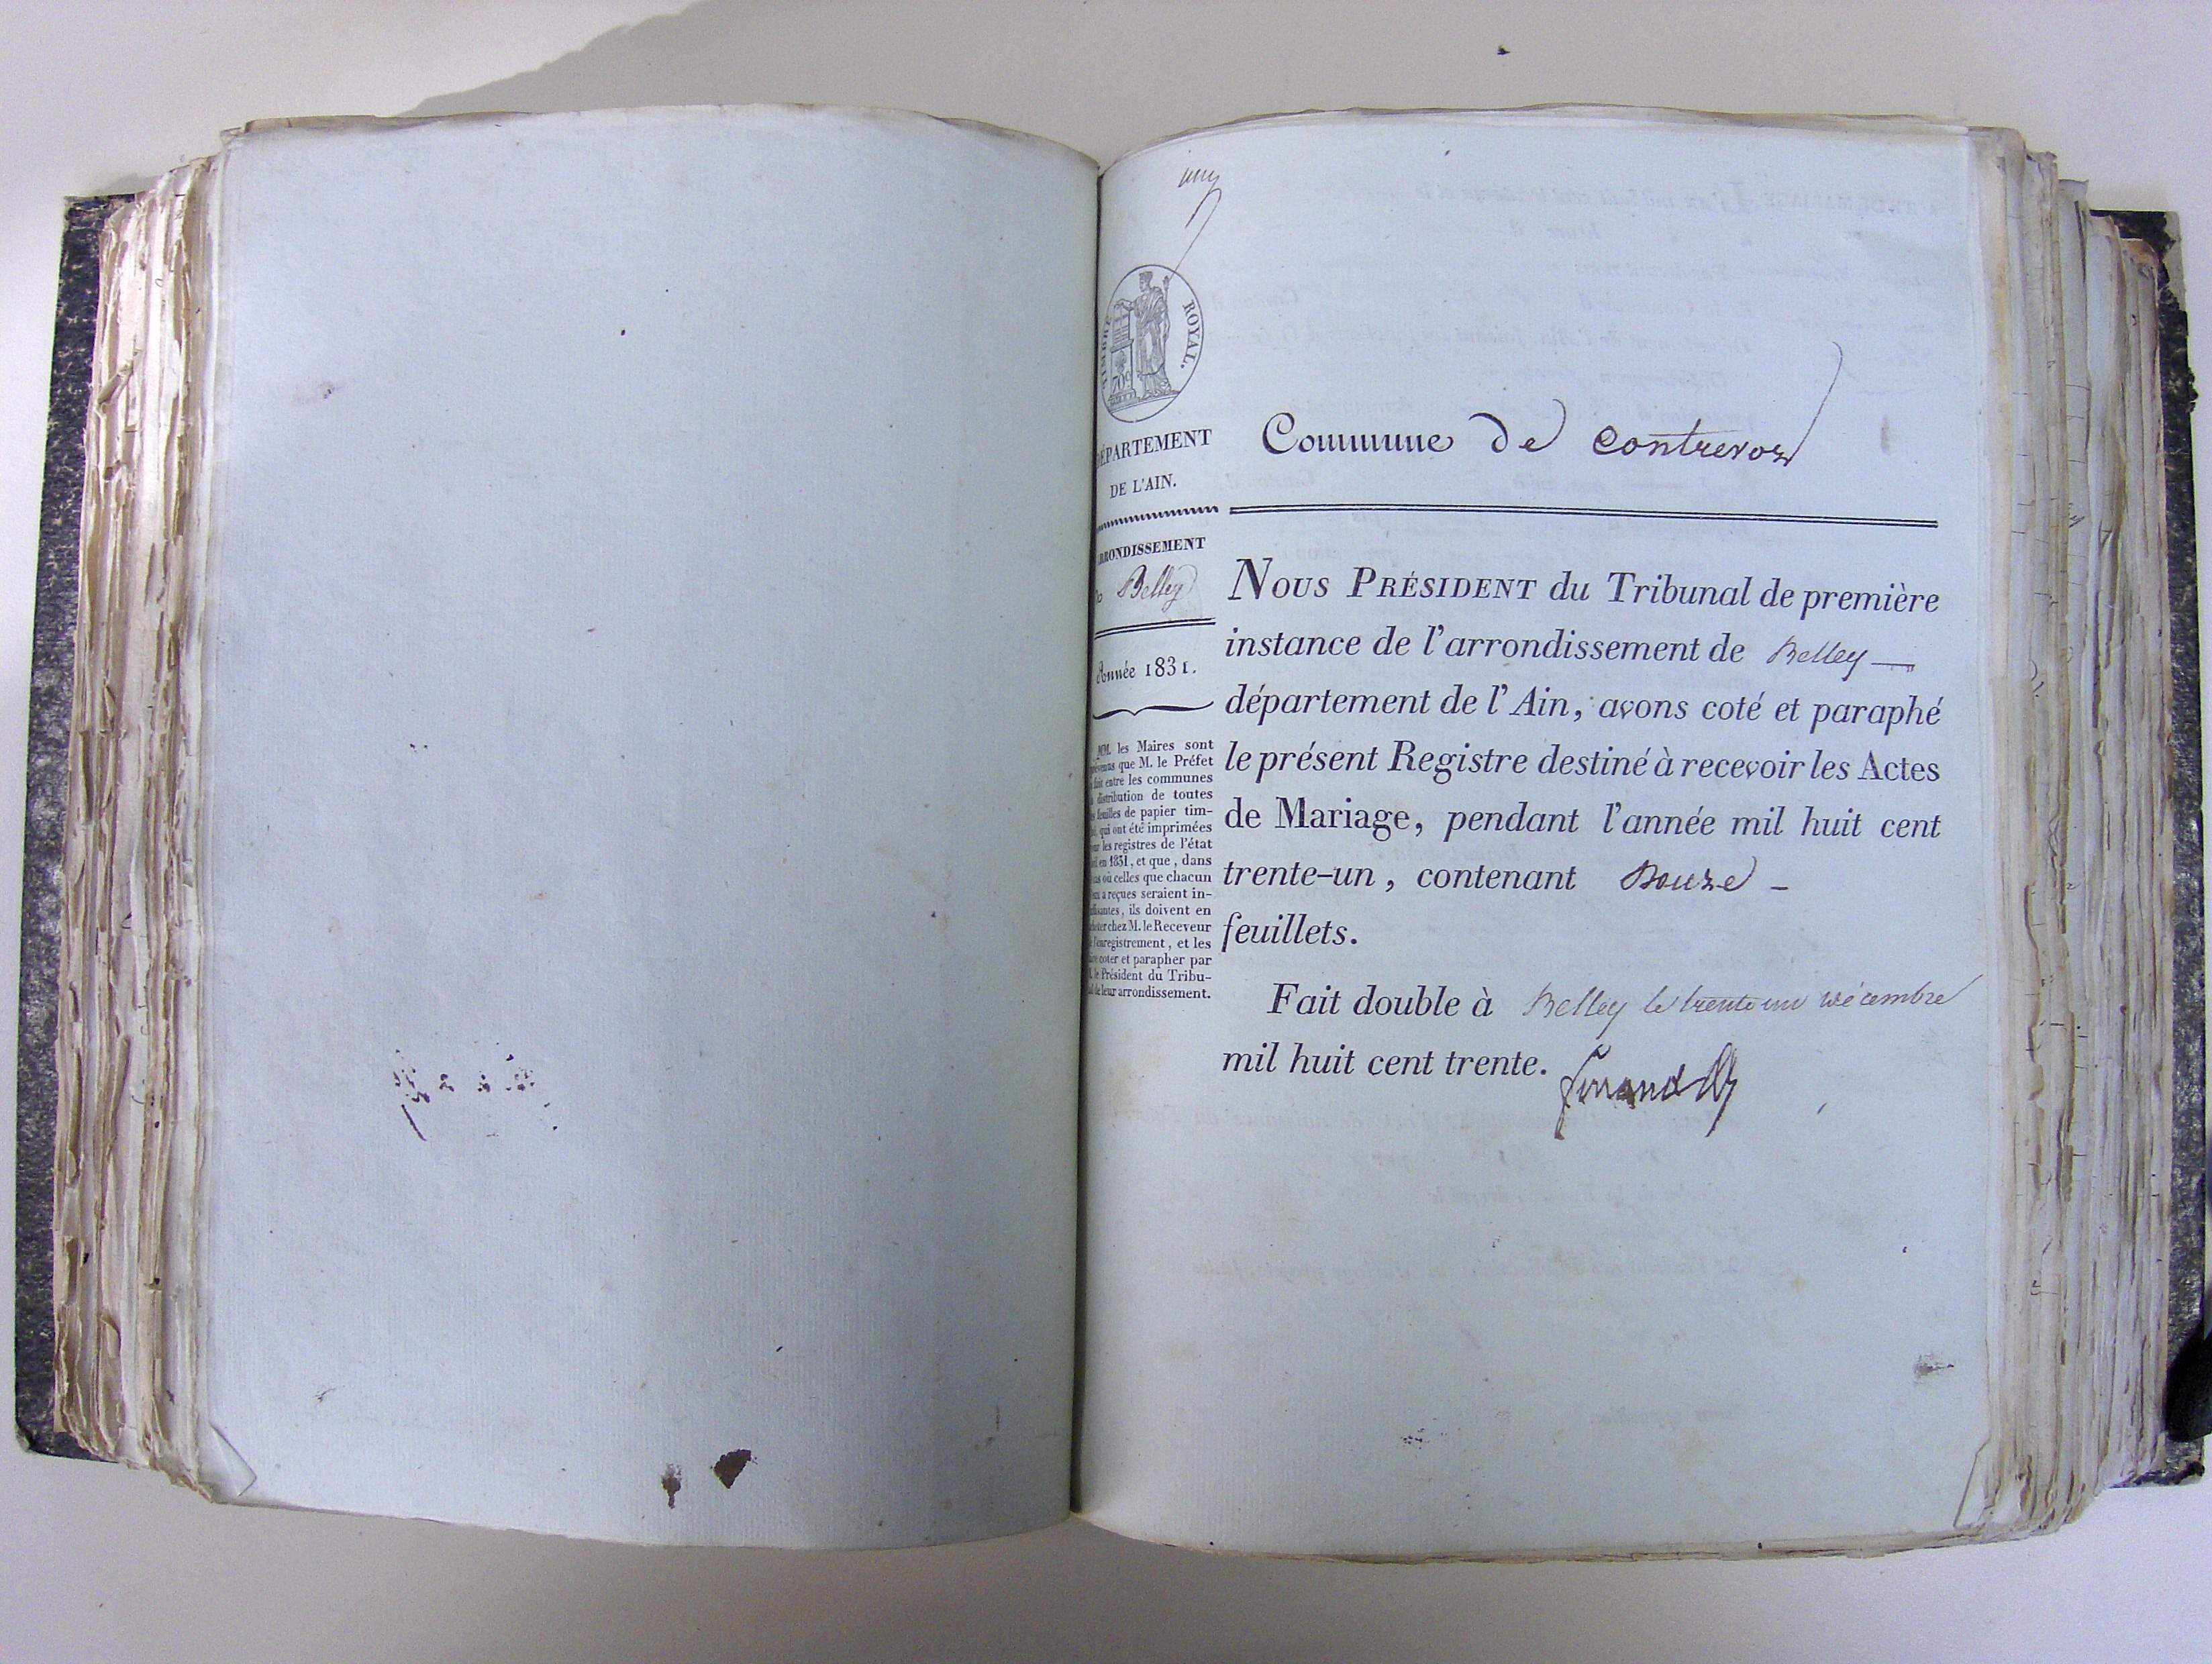 TIMBRE ROYAL.
70c
DÉPARTEMENT
DE L'AIN.
ARRONDISSEMENT
de Belley
Année 1831.
MM. les Maires sont
prévenus que M. le Préfet
a fait entre les communes
la distribution de toutes
les feuilles de papier tim-
bré, qui ont été imprimées
pour les registres de l'état
civil en 1831, et que, dans
le cas où celles que chacun
d'eux a reçues seraient in-
suffisantes, ils doivent en
acheter chez M. le Receveur
de l'enregistrement, et les
faire coter et parapher par
M. le Président du Tribu-
nal de leur arrondissement.
Commune de Contrevoz
NOUS PRÉSIDENT du Tribunal de première
instance de l'arrondissement de Belley
département de l'Ain, avons coté et paraphé
le présent Registre destiné à recevoir les Actes
de Mariage, pendant l'année mil huit cent
trente-un, contenant Douze -
feuillets.
Fait double à Belley le trente un décembre
mil huit cent trente.